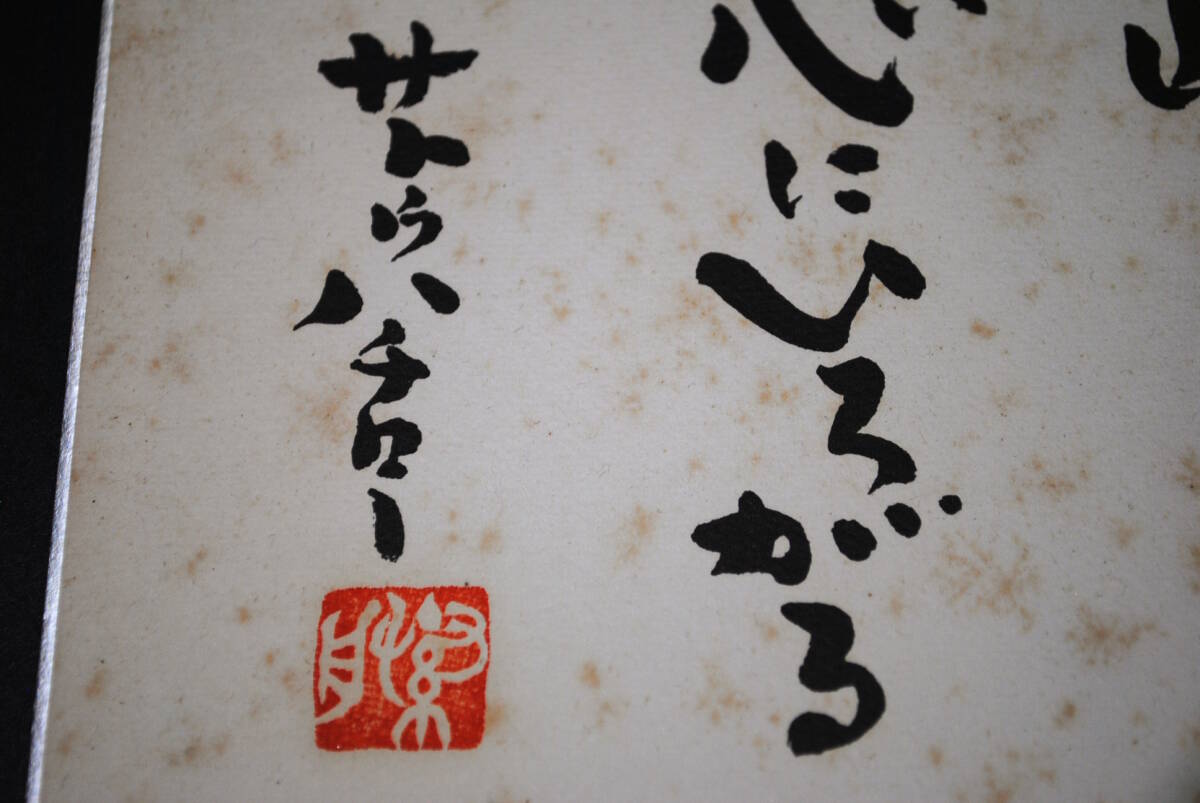 心にひろがる
サトウハチロー